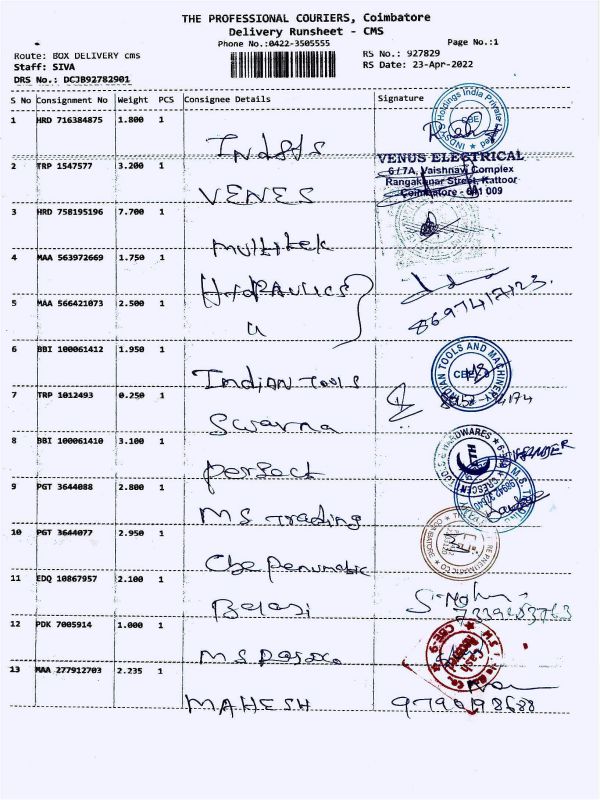 THE PROFESSIONAL COURIERS, Coimbatore
Delivery Runsheet - CMS
Phone No.:0422-3505555
Page No.:1
Route: BOX DELIVERY cms
RS No.: 927829
Staff: SIVA
RS Date: 23-Apr-2022
DRS No.: DCJB92782901
S No Consignment No Weight PCS Consignee Details Signature
1 HRD 716384875 1.800 1
2 TRP 1547577 3.200 1
VENUS ELECTRICAL
6 / 7A, Vaishnav Complex
Rangakonar Street, Kattoor
Coimbatore - 641 009
VENES
3 HRD 758195196 7.700 1
Multitek
4 MAA 563972669 1.750 1
Hydraulics
5 MAA 566421073 2.500 1
u
6 BBI 100061412 1.950 1
Indian Tools
INDIAN TOOLS AND MACHINERY
7 TRP 1012493 0.250 1
Swarna
8 BBI 100061410 3.100 1
perfect
9 PGT 3644088 2.800 1
M S Trading
10 PGT 3644077 2.950 1
Cbe Penumatic
11 EDQ 10867957 2.100 1
Balaji
12 PDK 7005914 1.000 1
M S
13 MAA 277912703 2.235 1
MAHESH 9790198688